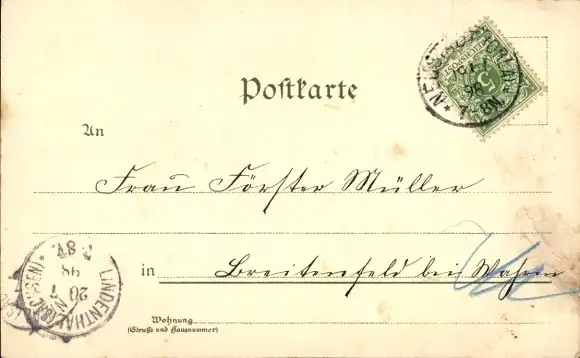 Postkarte
An
Frau Förster Müller
in Breitenfeld bei Wahren
Wohnung
(Straße und Hausnummer)
98
7-8N.
LINDENTHAL (SACHSEN)
20 7
98
7-8V.